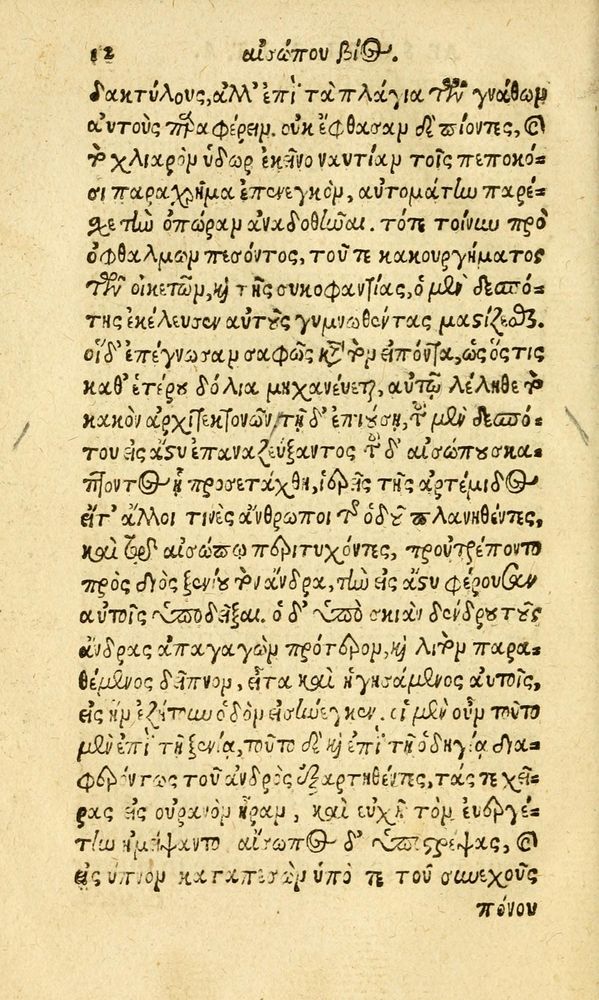 12 αἰσώπου βίος.
δακτύλους, ἀλλ' ἐπὶ τὰ πλάγια τῶν γνάθων
αὐτοὺς παραφέρειν. οὐκ ἔφθασαν δὲ πιόντες, καὶ
τὸ χλιαρὸν ὕδωρ ἐκεῖνο ναυτίαν τοῖς πεπωκό-
σι παραχρῆμα ἐπενεγκὸν, αὐτομάτην παρέ-
χε τὴν ὀπώραν ἀναδοθῆναι. τότε τοίνυν πρὸ
ὀφθαλμῶν πεσόντος, τοῦ τε κακουργήματος
τῶν οἰκετῶν, καὶ τῆς συκοφαντίας, ὁ μὲν δεσπό-
της ἐκέλευσεν αὐτοὺς γυμνωθέντας μαστίζεσθαι.
οἱ δ' ἐπέγνωσαν σαφῶς κατὰ τὸν εἰπόντα, ὡς ὅς τις
καθ' ἑτέρου δόλια μηχανεύεται, αὐτῷ λέληθε τὸ
κακὸν ἀρχιτεκτονῶν, τῇ δ' ἐπιούσῃ, τοῦ μὲν δεσπό-
του εἰς ἄστυ ἐπαναζεύξαντος τοῦ δ' αἰσώπου σκά-
πτοντος ᾗ προσετάχθη, ἱερεῖς τῆς ἀρτέμιδος
εἴτ' ἄλλοι τινὲς ἄνθρωποι τῆς ὁδοῦ πλανηθέντες,
καὶ τῷ αἰσώπῳ περιτυχόντες, προὔτρέποντο
πρὸς διὸς ξενίου τὸν ἄνδρα, τὴν εἰς ἄστυ φέρουσαν
αὐτοῖς ὑποδεῖξαι. ὁ δ' ὑπὸ σκιὰν δένδρου τοὺς
ἄνδρας ἀπαγαγὼν πρότερον, καὶ λιτὸν παρα-
θέμενος δεῖπνον, εἶτα καὶ ἡγησάμενος αὐτοῖς,
εἰς ἣν ἐζήτουν ὁδὸν εἰσήνεγκεν. οἱ μὲν οὖν τοῦτο
μὲν ἐπὶ τῇ ξενίᾳ, τοῦτο δὲ καὶ ἐπὶ τῇ ὁδηγίᾳ δια-
φερόντως τοῦ ἀνδρὸς ἐξαρτηθέντες, τάς τε χεῖ-
ρας εἰς οὐρανὸν ἦραν, καὶ εὐχῇ τὸν εὐεργέ-
την ἠμείψαντο αἴσωπος δ' ὑποστρέψας, καὶ
εἰς ὕπνον καταπεσὼν ὑπό τε τοῦ συνεχοῦς
πόνου